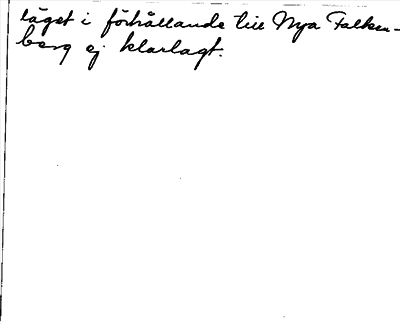 läget i förhållande till Nya Falken-
berg ej klarlagt.